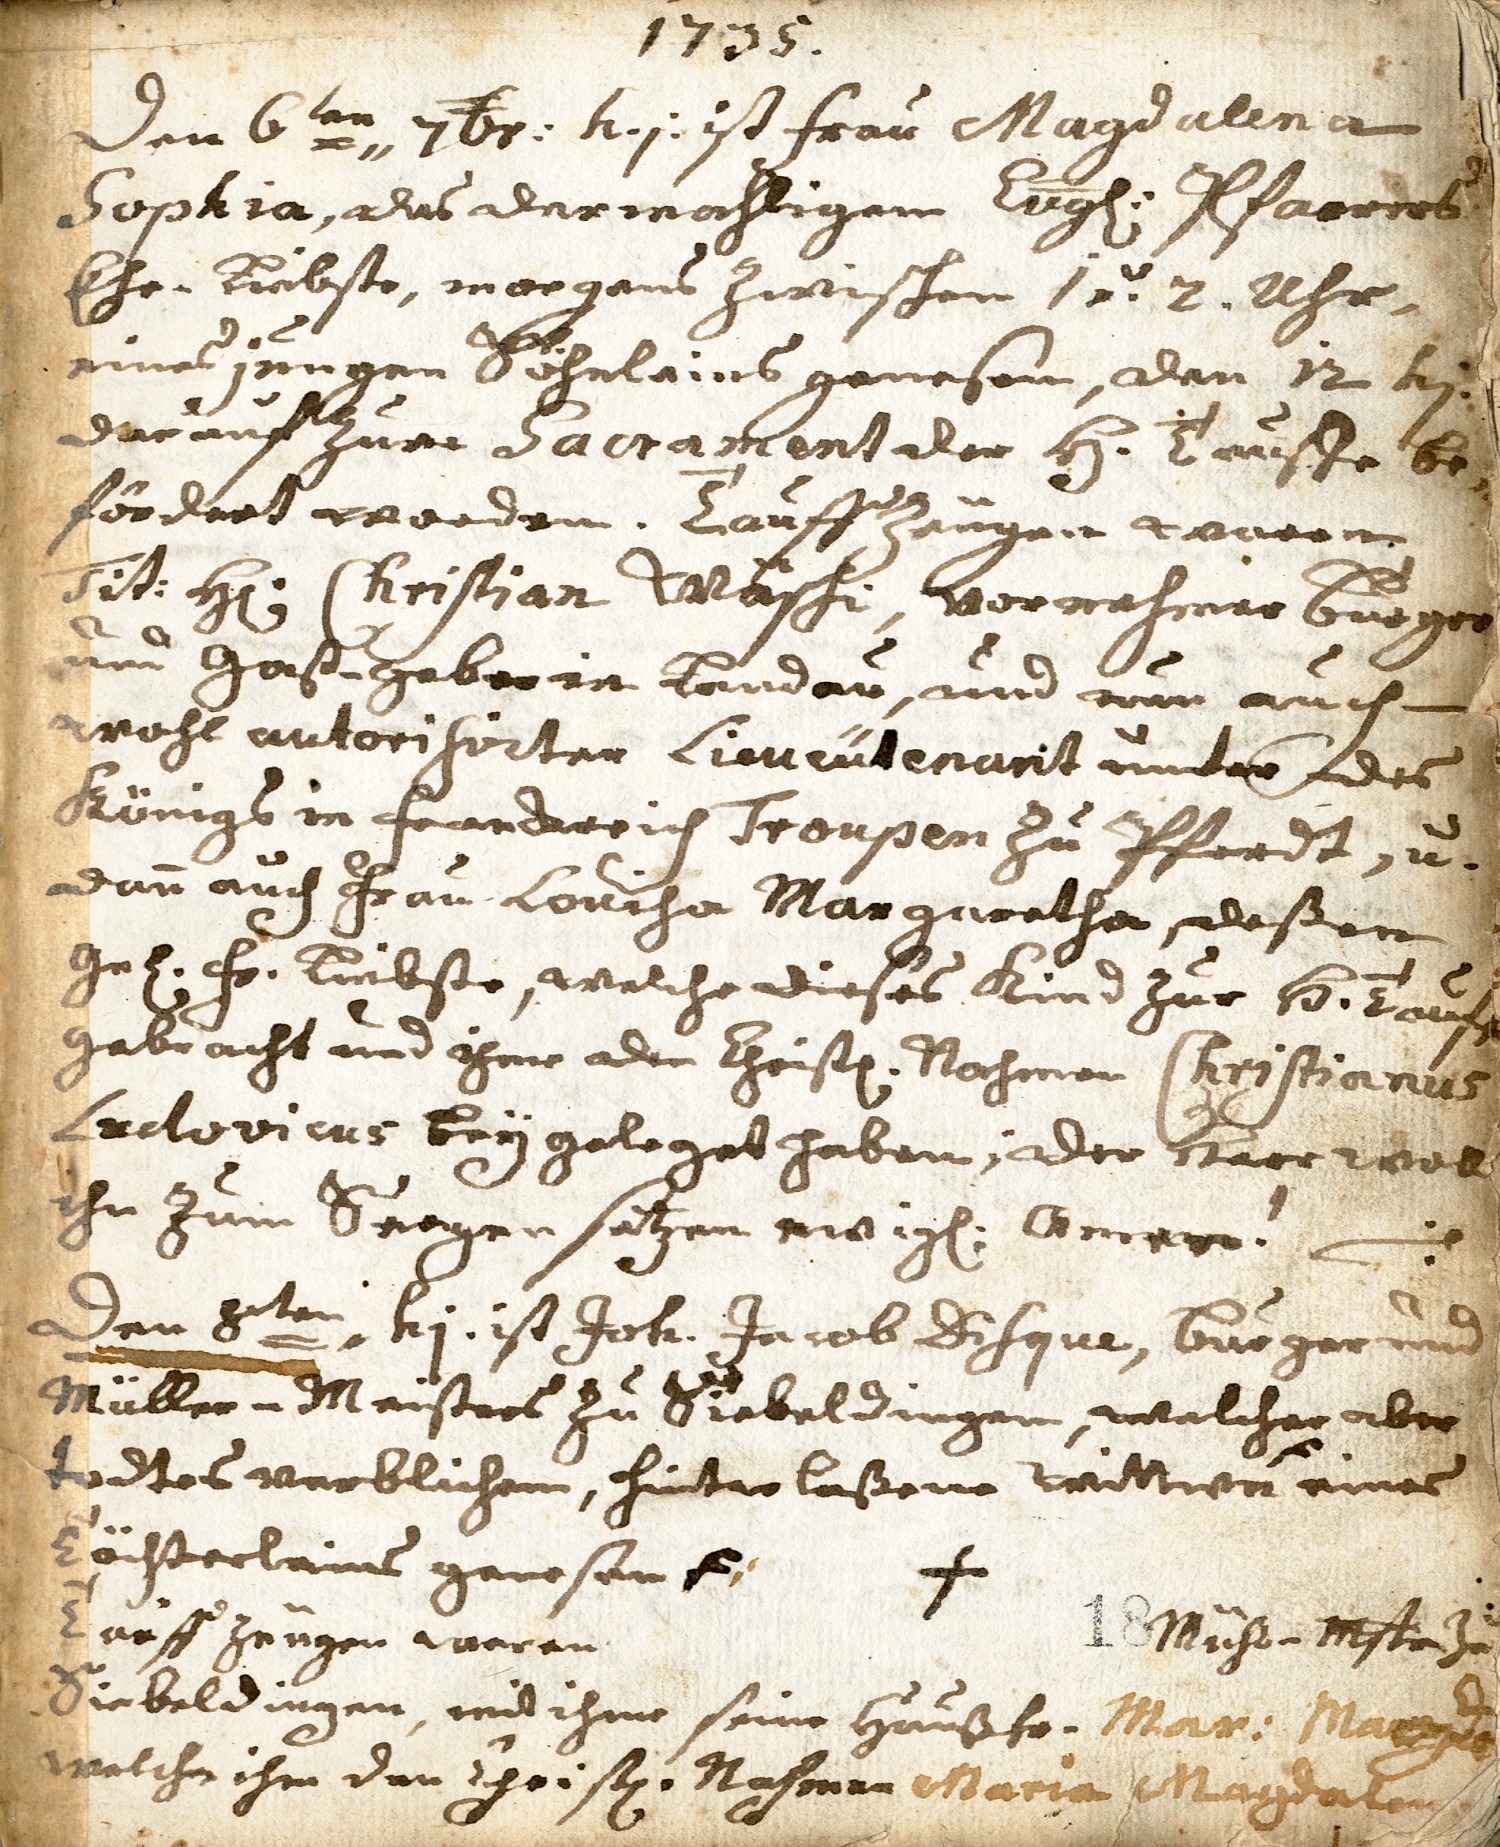 1735.
Den 6ten 7br: h.j. ist Frau Magdalena
Sophia, des dermahligen Evgl: Pfarrers
Ehe-Liebste, morgens zwischen 1 u. 2. Uhr,
eines jungen Söhnleins genesen, den 12 hj.
darauff zum Sacrament der H. Tauffe be-
fördert worden. Tauffzeugen waren
Tit: H: Christian, vornehmer Burger
und Gast-geber in Landau, und nun auch
wohl autorisirter Lieuütenant unter des
Königs in Franckreich Troupen zu Pferdt, u.
dan auch Frau Louisa Margaretha, deßen
Fr. Liebste, welche dieses Kind zur H. Tauff
gebracht und ihme den Christl. Nahmen Christianus
Ludovicus beÿgeleget haben; der Herr woll
ihn zum Seegen setzen ewigl: Amen!
Den 8ten hj. ist Joh. Jacob Disque, Burger und
Müller-Meisters zu Siebeldingen, welcher aber
todtes verblichen, hinterlaßene Wittwe eines
Töchterleins genesen
Tauffzeugen waren 18 Mühl-Mstr zu
Siebeldingen, mit ihme seine Haußfr. Mar: Magda
welche ihm den Christl. Nahmen Maria Magdalen